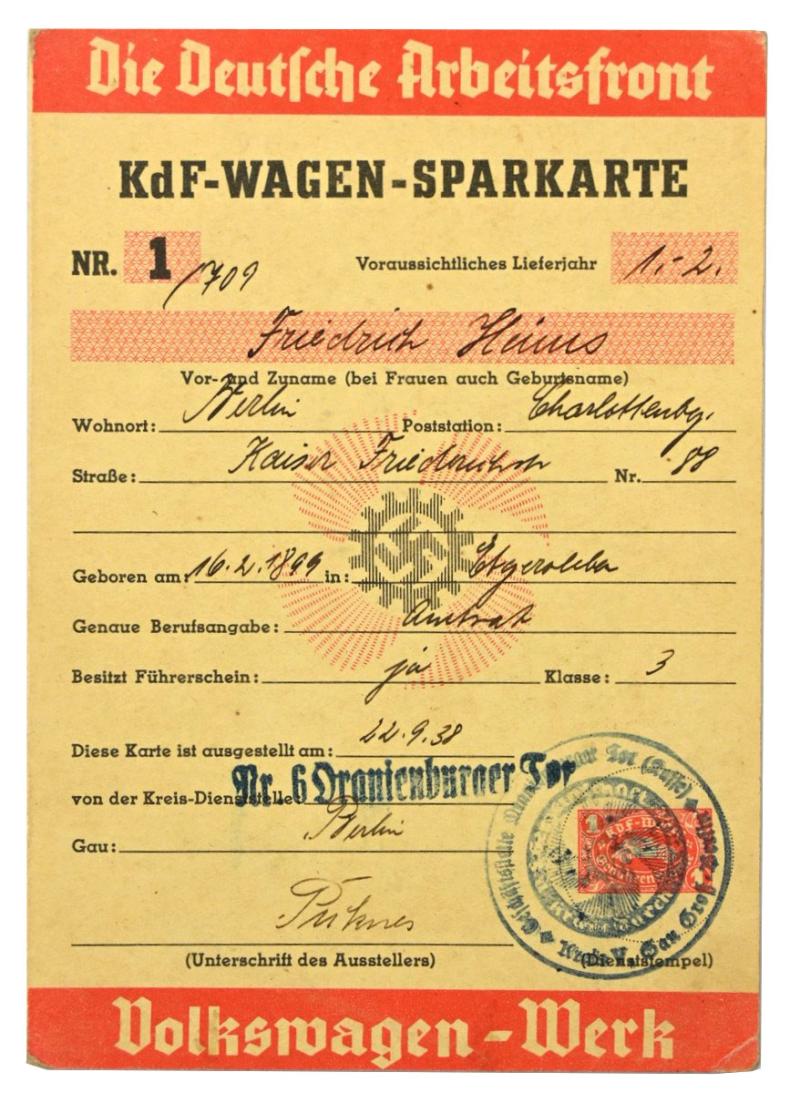 Die Deutsche Arbeitsfront
KdF-WAGEN-SPARKARTE
NR. 1 /709 Voraussichtliches Lieferjahr 1.-2.
Friedrich Heims
Vor- und Zuname (bei Frauen auch Geburtsname)
Wohnort: Berlin Poststation: Charlottenbg.
Straße: Kaiser Friedrichstr Nr. 88
Geboren am: 16.2.1899 in:
Genaue Berufsangabe: Amtrat
Besitzt Führerschein: ja Klasse: 3
Diese Karte ist ausgestellt am: 22.9.38
von der Kreis-Dienststelle Nr. 6 Oranienburger Tor
Gau: Berlin
(Unterschrift des Ausstellers) (Dienststempel)
1 KdF-Wagen
Volkswagen-Werk